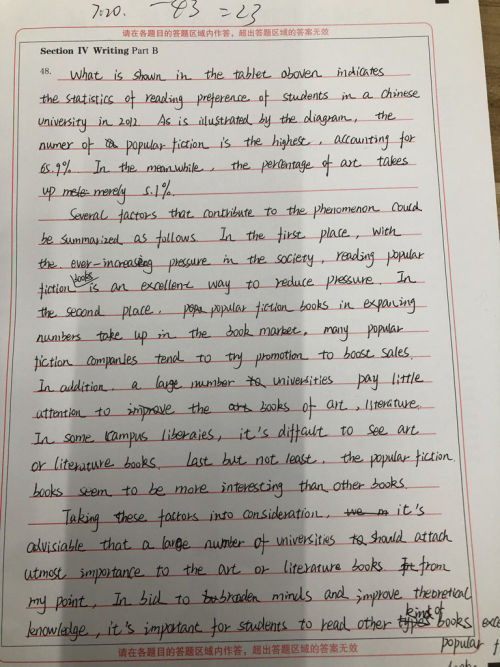 7:20. -83 = 23
请在各题目的答题区域内作答，超出答题区域的答案无效
Section IV Writing Part B
48. What is shown in the tablet aboven indicates
the statistics of reading preference of students in a Chinese
university in 2012. As is illustrated by the diagram, the
numer of popular fiction is the highest, accounting for
65.9%. In the meanwhile, the percentage of art takes
up merely 5.1%.
Several factors that contribute to the phenomenon could
be summarized as follows. In the first place, with
the ever-increasing pressure in the society, reading popular
fiction books is an excellent way to reduce pressure. In
the second place, popular fiction books in expaning
numbers take up in the book market, many popular
fiction companies tend to try promotion to boost sales.
In addition, a large number universities pay little
attention to improve the books of art, literature.
In some campus liberaies, it's difficult to see art
or literature books. Last but not least, the popular fiction
books seem to be more interesting than other books.
Taking these factors into consideration, it's
advisiable that a large number of universities should attach
utmost importance to the art or literature books from
my point, In bid to braden minds and improve theoretical
knowledge, it's important for students to read other kind of books
popular
请在各题目的答题区域内作答，超出答题区域的答案无效